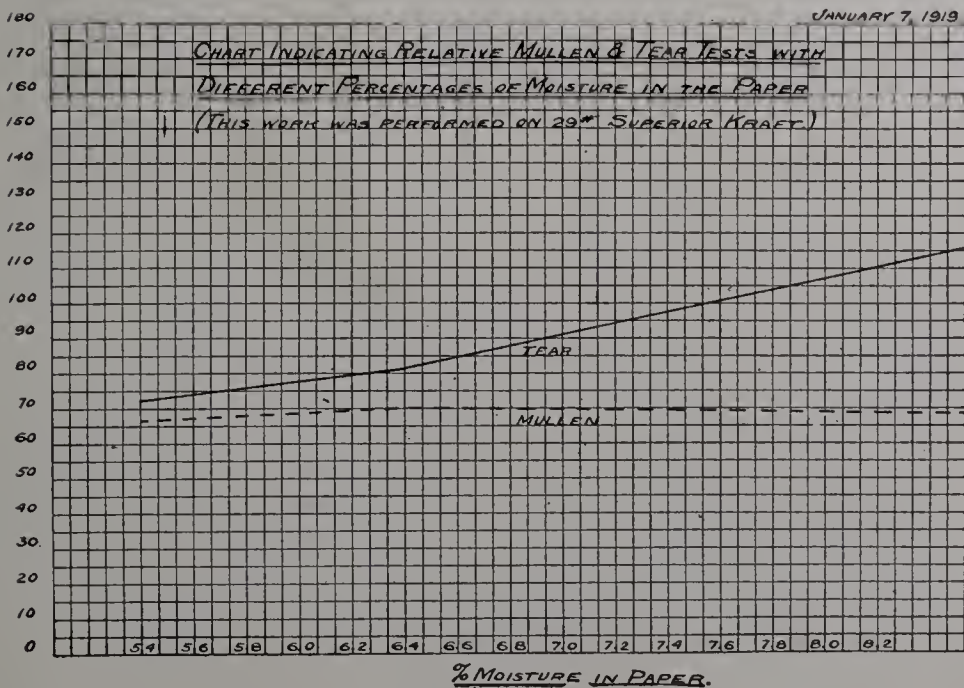 JANUARY 7, 1919
CHART INDICATING RELATIVE MULLEN & TEAR TESTS WITH
DIFFERENT PERCENTAGES OF MOISTURE IN THE PAPER
(THIS WORK WAS PERFORMED ON 29# SUPERIOR KRAFT.)
180
170
160
150
140
130
120
110
100
90
80
70
60
50
40
30
20
10
0
TEAR
MULLEN
5.4 5.6 5.8 6.0 6.2 6.4 6.6 6.8 7.0 7.2 7.4 7.6 7.8 8.0 8.2
% MOISTURE IN PAPER.